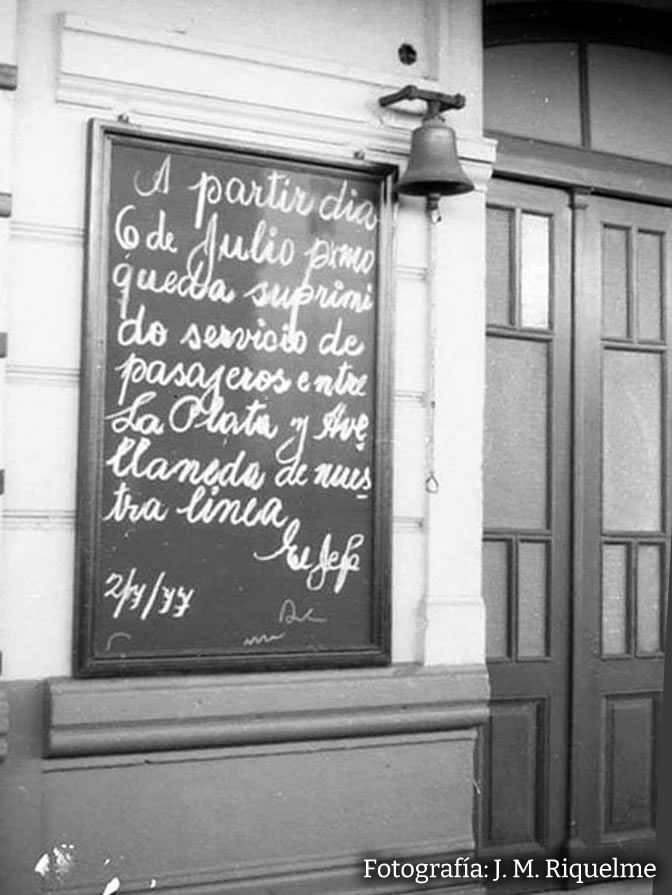 A partir dia
6 de Julio pxmo
queda suprimi
do servicio de
pasajeros entre
La Plata y Ave
llaneda de nues
tra linea
El Jefe
2/7/77
Fotografía: J. M. Riquelme